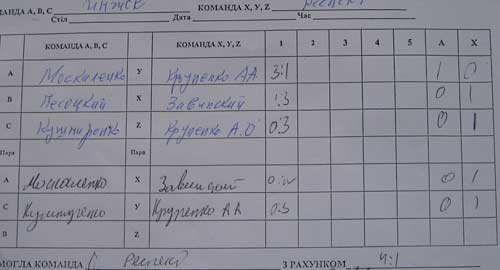 МАНДА А, В, С КОМАНДА X, Y, Z Респект
Стіл Дата Час
КОМАНДА А, В, С КОМАНДА X, Y, Z 1 2 3 4 5 A X
А Москаленко Y Крупенко АА 3:1 1 0
В Песоцкий X Завинский 1:3 0 1
С Кушниренко Z Крупенко А.О 0:3 0 1
Пара Пара
А Москаленко X 0 1
С Y Крупенко АА 0:3 0 1
В Z
МОГЛА КОМАНДА Респект З РАХУНКОМ 4:1